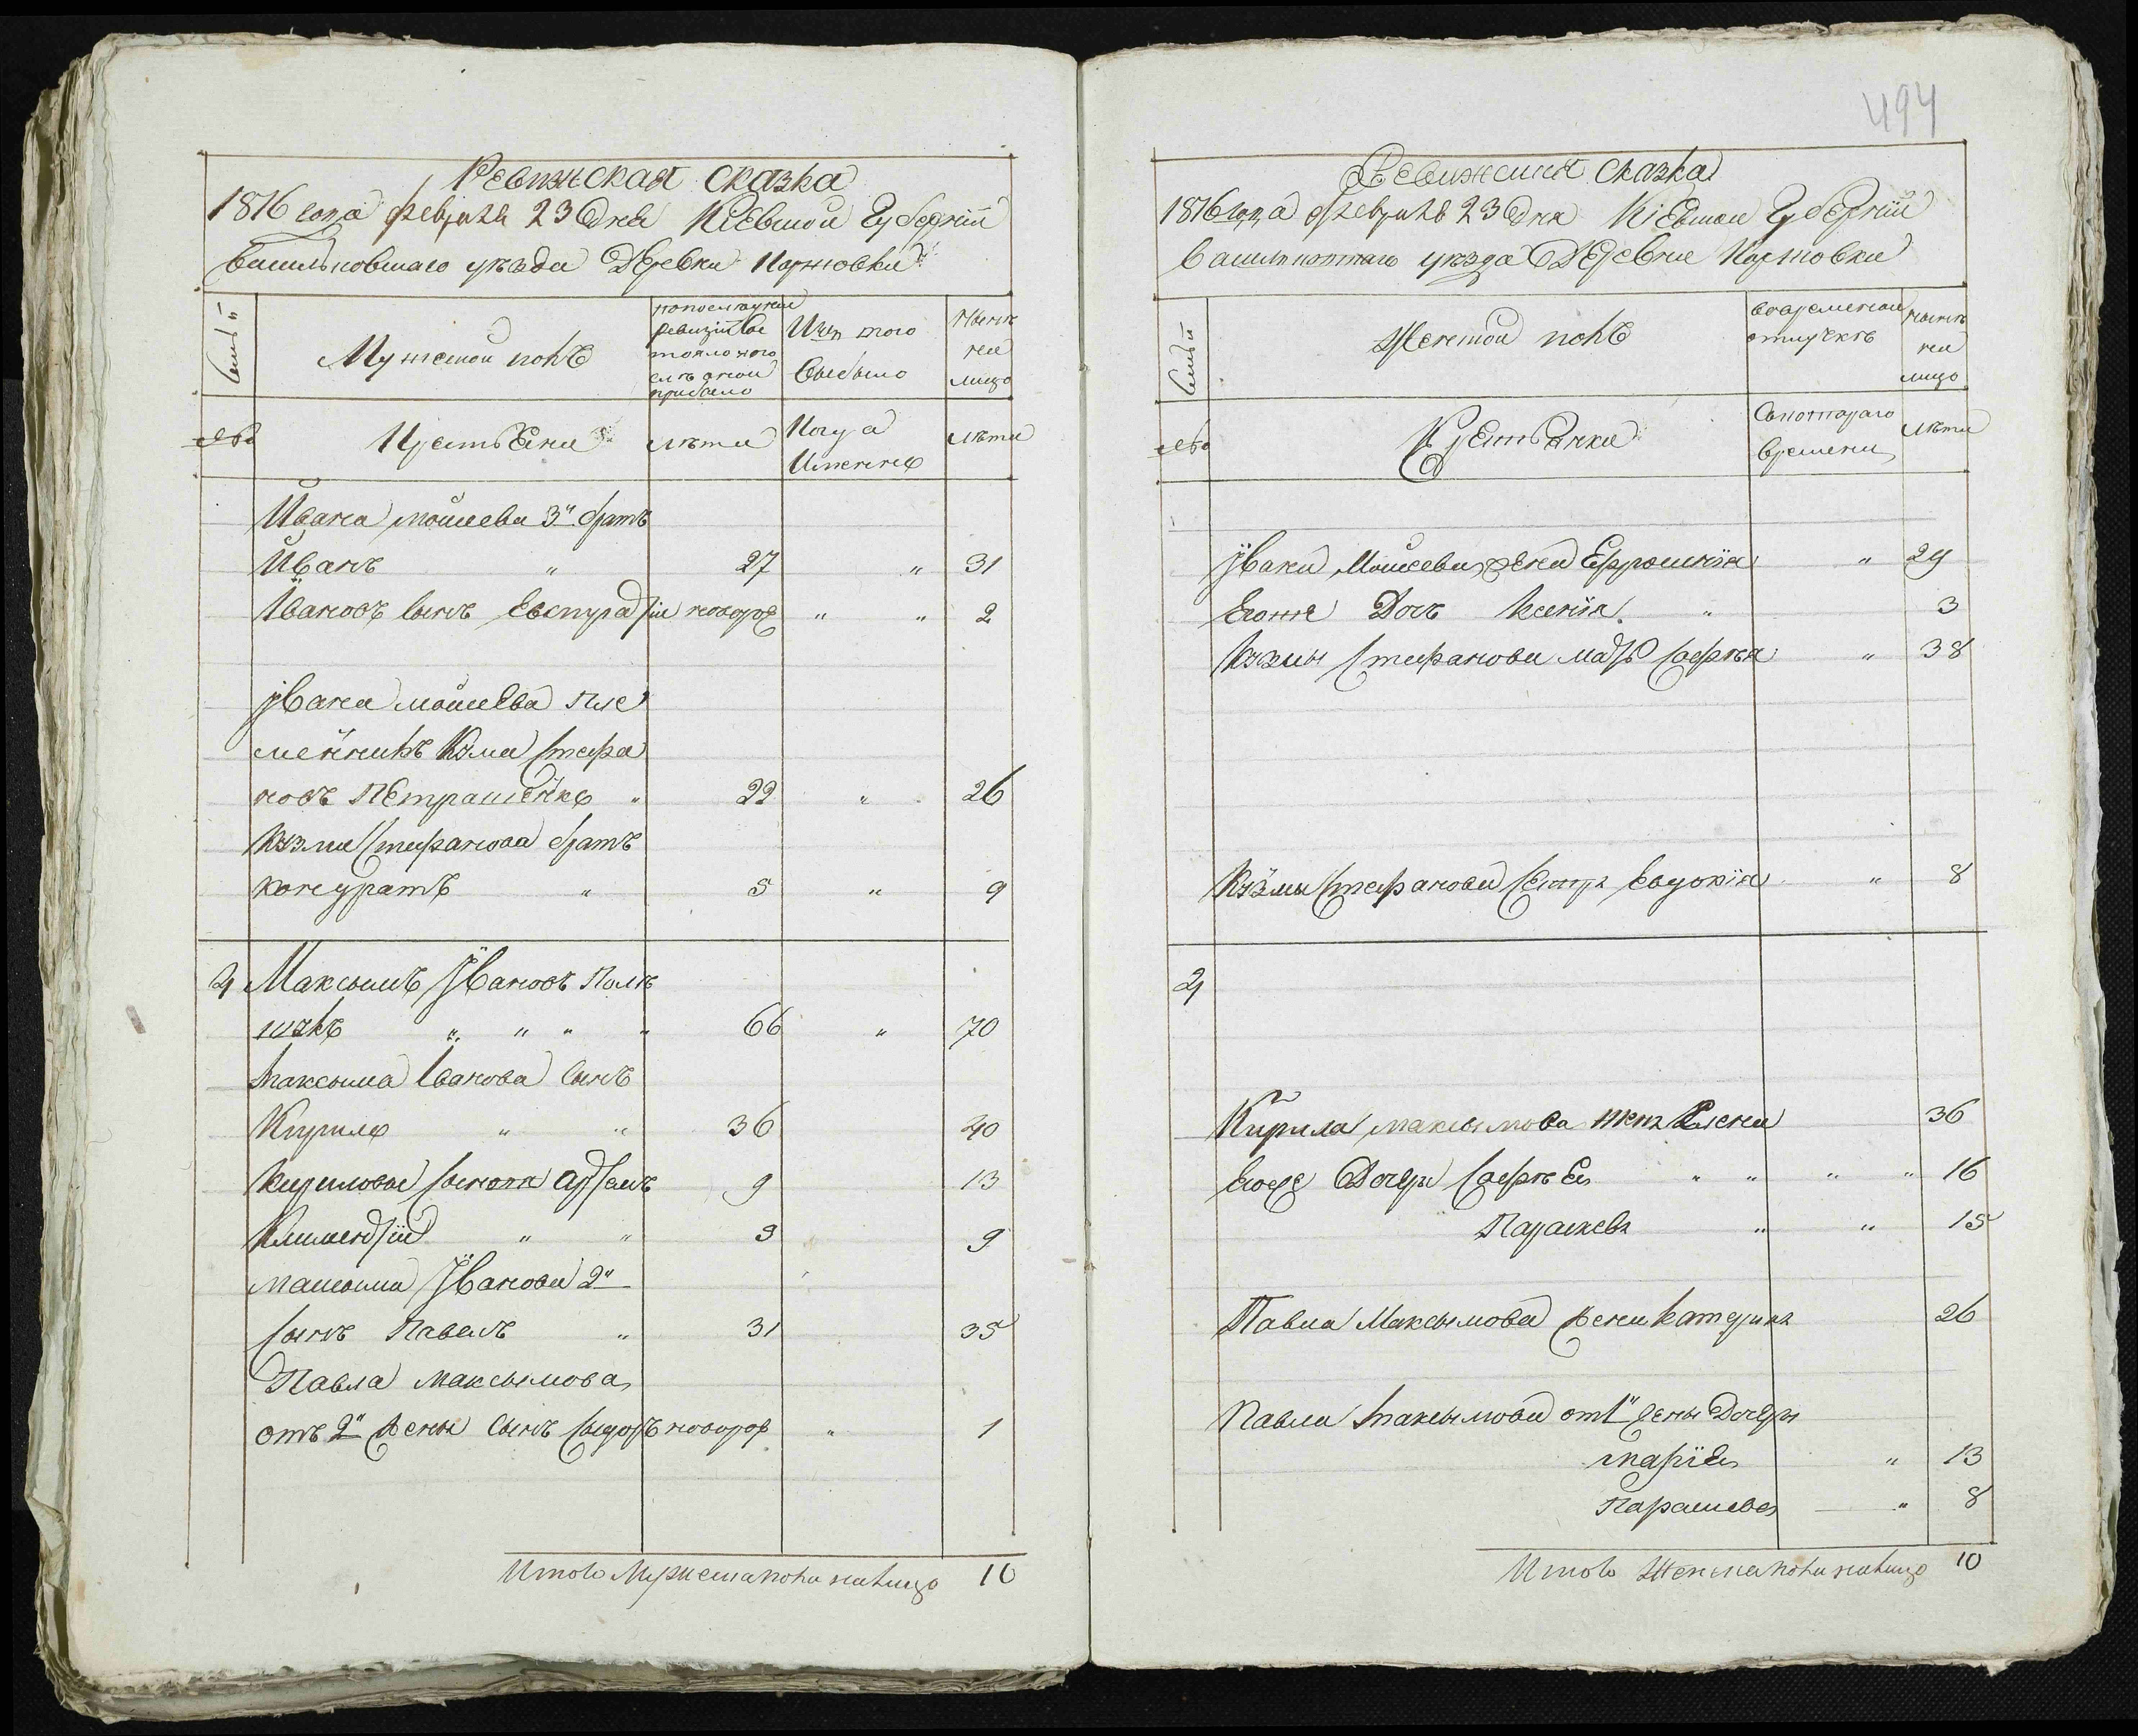 Ревижская сказка
1816 года февраля 23 дня Кіевской Губерніи
васильковскаго уезда Деревки
Семьи
Мужеской полъ
попоследней
ревизіи со
стояло и по
сле оной
прибыло
Изъ того
выбыло
Ныне
на
лицо
№
Крестьяне
лета
Когда
Именно
лета
Ивана мойсеева 3й братъ
Иванъ " 27 " 31
Івановъ сынъ Евстратій новорож " " 2
Івана мойсева пле
менникъ Кузма Стефа
новъ Петрашенко " 22 " 26
Кузми Стефанова братъ
кондратъ " 5 " 9
2 Максымъ Івановъ Поле
щукъ " " " " 66 " 70
Максима Іванова сынъ
Кирило " " 36 40
Кириловы сыновя артемъ 9 13
Климентій " " 5 9
максыма Іванова 2й
сынъ Павелъ " 31 35
Павла максымова
отъ 2й жены сынъ Сидоръ новорож " 1
Итого мужеска пола налицо 10
494
Ревижская сказка
1816 года февраля 23 дня Кіевской Губерніи
Васильковскаго уезда Деревне
Семьи
Женской полъ
вовременной
отлучке
ныне
на
лицо
№
Крестянки
Скотораго
времени
лета
Івана Мойсеева жена Ефросинія " 29
Егоже Дочь Ксенія " 3
Кузмы Стефанова мать Софія " 38
Кузмы Стефанова сестра Евдокія " 8
2
Кирила максымова жена Елена 36
Егоже Дочеры Софія " " " " 16
Параскева " " 15
Павла Максымова жена катерина 26
Павла Максымова от 1й жены Дочеры
марія " 13
Параскева " 8
Итого Женска пола налицо 10